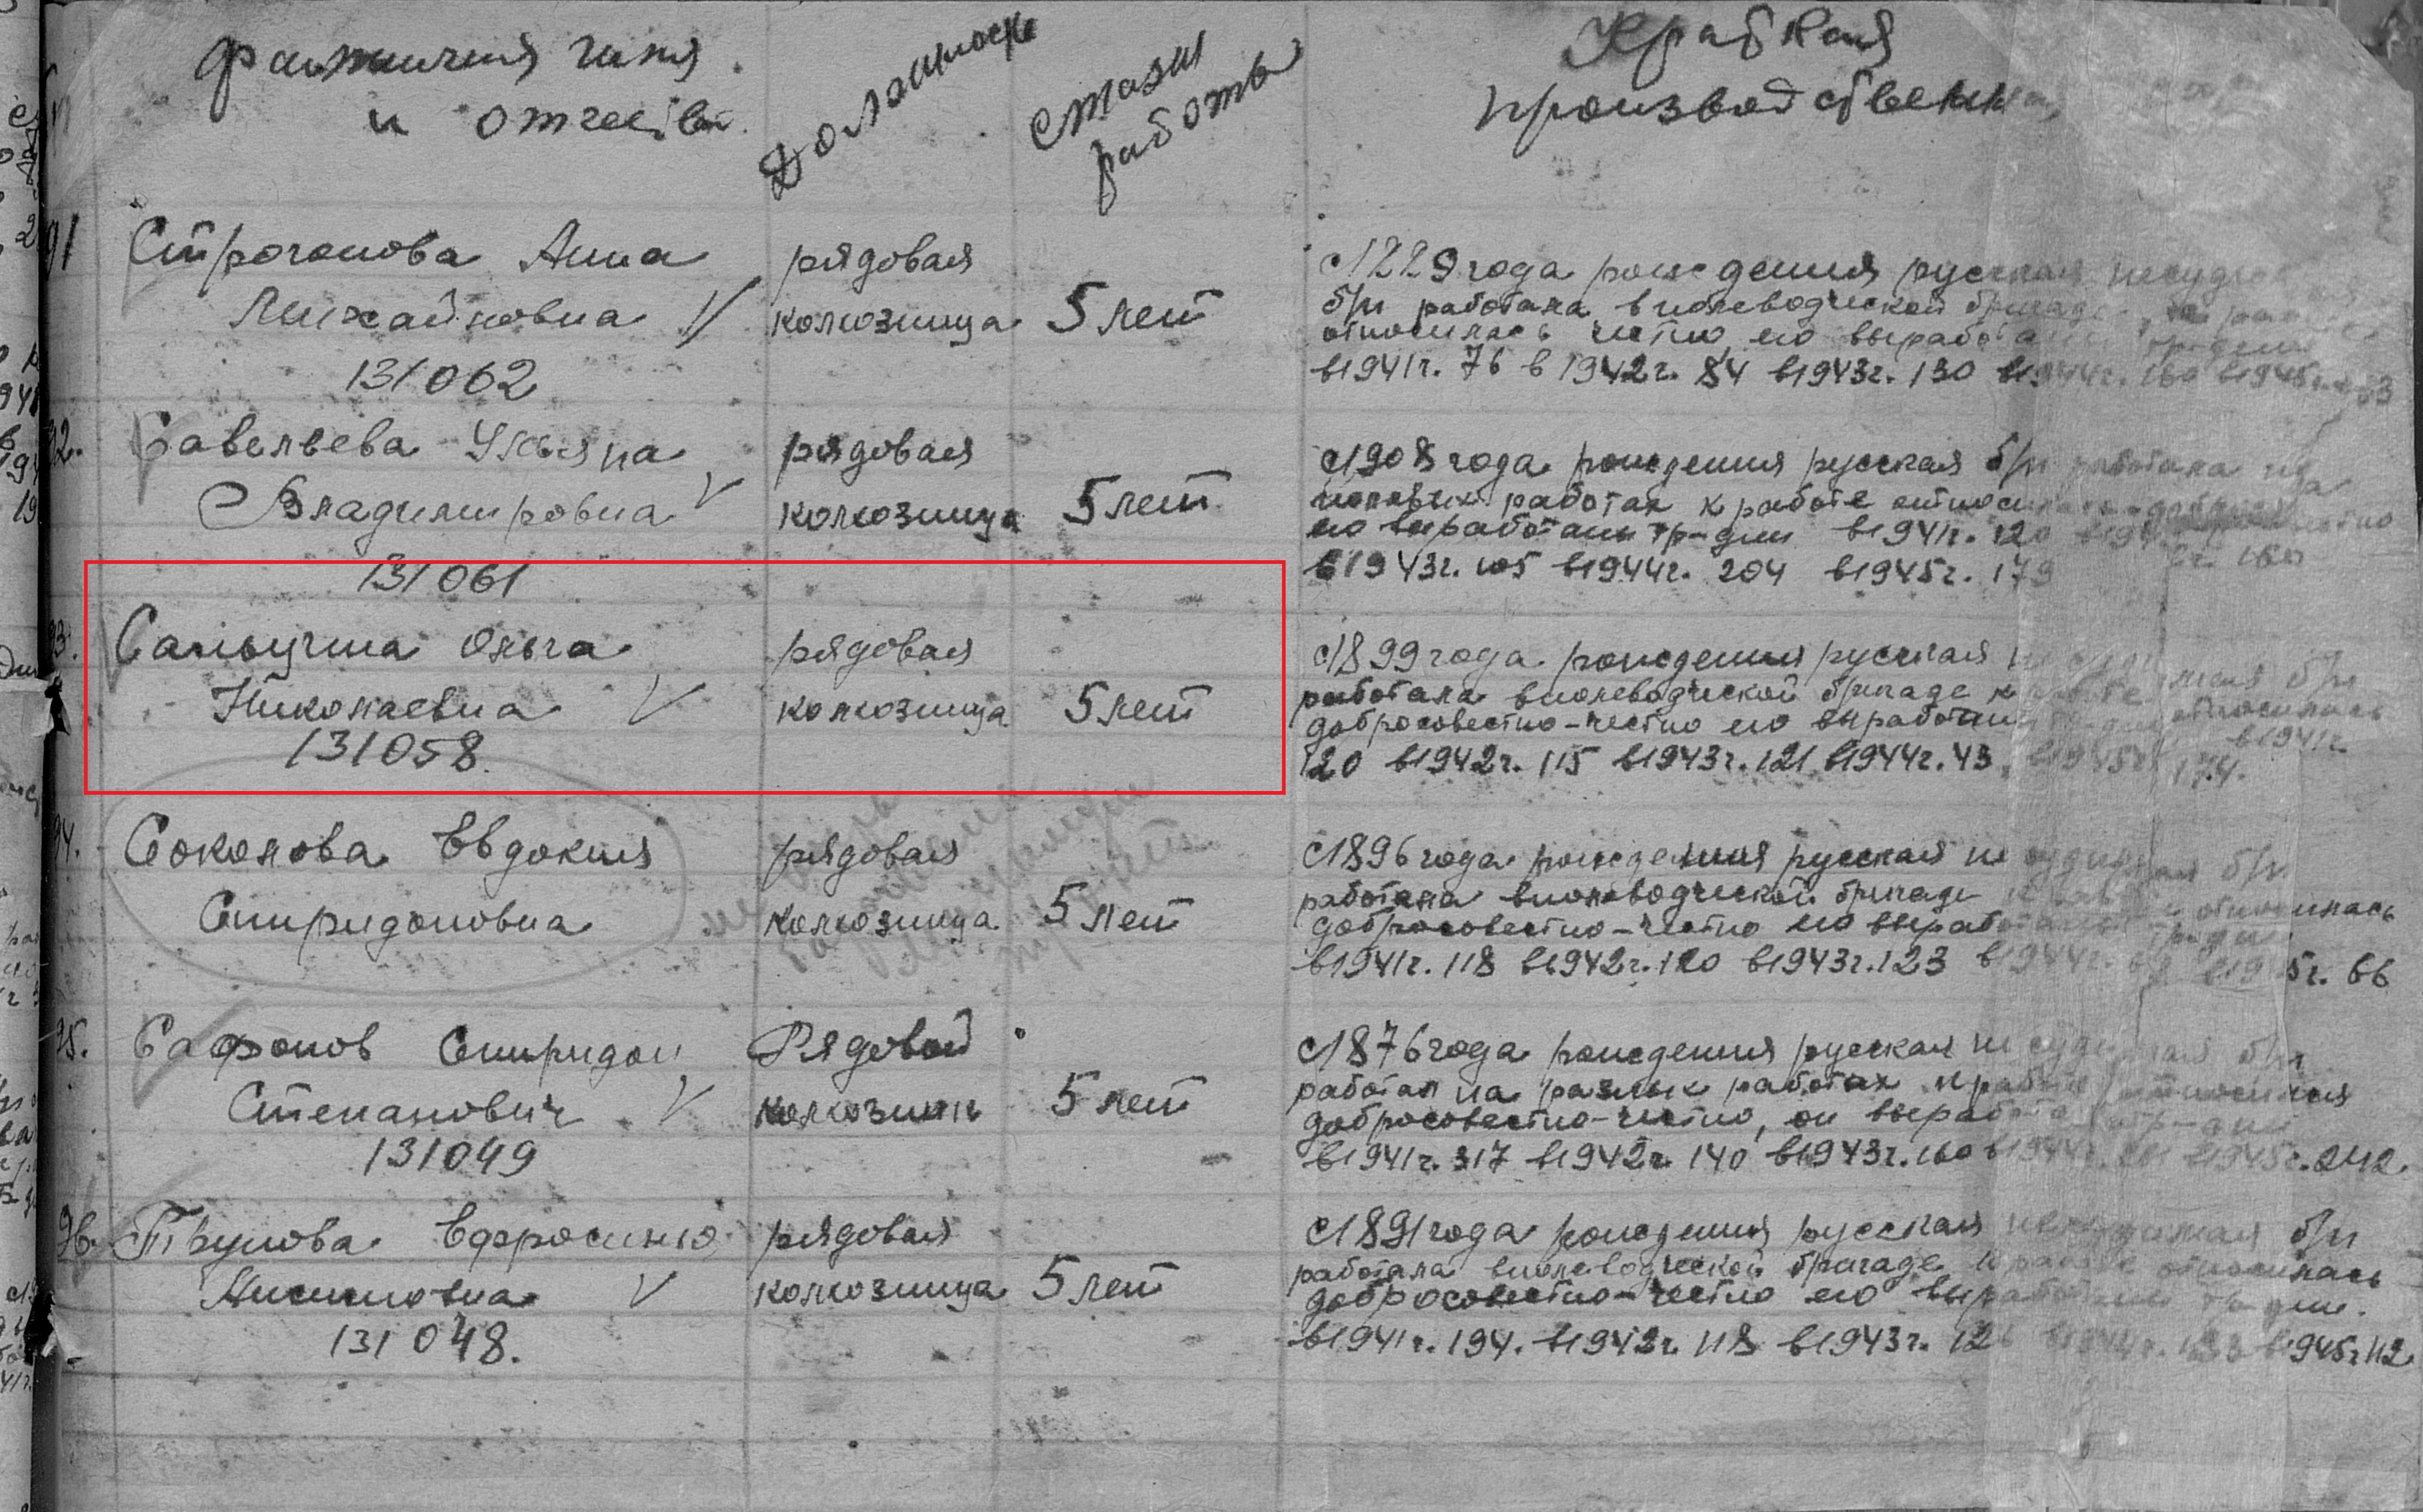 фамилия имя
и отчество
Должность
стаж
работы
Краткая
производственная
91
Строганова Анна
Михайловна
131062
рядовая
колхозница
5 лет
с 1229 года рождения русская несуд
б/п работала в полеводческой бригаде, к
относилась честно, ею выработано тр-дни
в 1941г. 76 в 1942г. 84 в 1943г. 130 в 1944г. 160 в 1945г.
92.
Савельева Ульяна
Владимировна
131061
рядовая
колхозница
5 лет
с 1908 года рождения русская б/п работала на
полевых работах к работе относилась
ею выработаны тр-дни в 1941г. 120
2г. 160
в 1943г. 105 в 1944г. 204 в 1945г. 179
93.
Ольга
Николаевна
131058
рядовая
колхозница
5 лет
с 1899 года рождения русская б/п
работала в полеводческой бригаде к работе относилась
добросовестно-честно ею выработаны в 1941г.
120 в 1942г. 115 в 1943г. 121 в 1944г. 43, в 1945г. 174.
94.
Соколова Евдокия
Спиридоновна
рядовая
колхозница
5 лет
с 1896 года рождения русская не судимая б/п
работала в полеводческой бригаде к работе относилась
добросовестно-честно ею выработаны тр-дни
в 1941г. 118 в 1942г. 120 в 1943г. 123 в 1944г. в 1945г. 66
95.
Сафонов Спиридон
Степанович
131049
Рядовой
колхозник
5 лет
с 1876 года рождения русская не судимая б/п
работал на разных работах к работе относился
добросовестно-честно, он выработал тр-дни
в 1941г. 317 в 1942г. 140 в 1943г. 160 в 1944г. в 1945г. 242.
96.
Ефросинья
Анисимовна
131048.
рядовая
колхозница
5 лет
с 1891 года рождения русская не судимая б/п
работала в полеводческой бригаде к работе относилась
добросовестно-честно ею выработаны тр-дни.
в 1941г. 194. в 1942г. 118 в 1943г. в 1944г. в 1945г 112